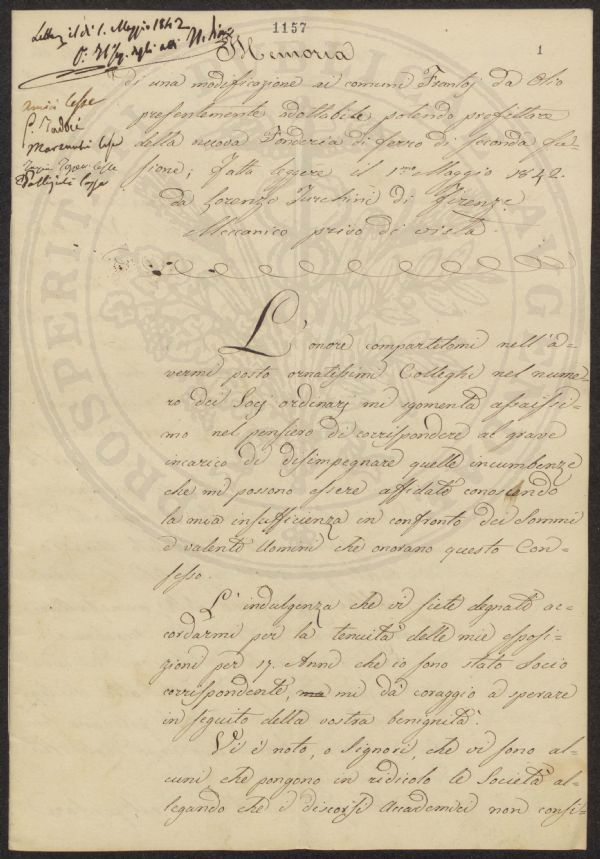 Letta il dì 1. Maggio 1842
1157
1
Memoria
di una modificazione ai comuni Frantoj da Olio
presentemente adottabile potendo profittare
della nuova Fonderia di ferro di seconda fu=
sione; fatta leggere il 1mo Maggio 1842.
da Lorenzo Turchini di Firenze
Meccanico privo di vista.
L'onore compartitomi nell'a=
vermi posto ornatissimi Colleghi nel nume=
ro dei Socj ordinarj mi sgomenta assaissi=
mo nel pensiero di corrispondere al grave
incarico di disimpegnare quelle incumbenze
che mi possono essere affidate conoscendo
la mia insufficienza in confronto dei sommi
e valenti Uomini che onorano questo Con=
sesso.
L'indulgenza che vi siete degnati ac=
cordarmi per la tenuità delle mie esposi=
zioni per 17. Anni che io sono stato Socio
corrispondente, ma mi dà coraggio a sperare
in seguito della vostra benignità.
Vi è noto, o Signori, che vi sono al=
cuni, che pongono in ridicolo le Società al=
legando che i discorsi Accademici non consi=
PROSPERITÀ